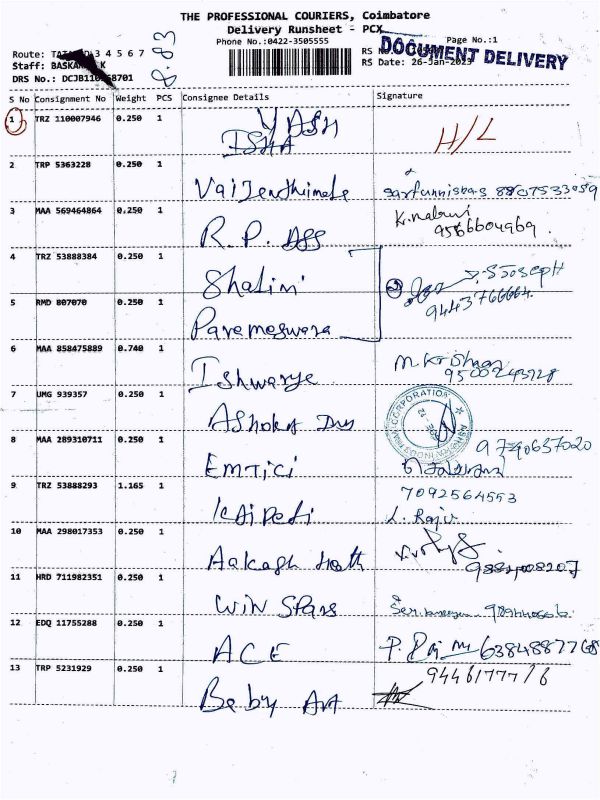 THE PROFESSIONAL COURIERS, Coimbatore
Delivery Runsheet - PCX
Phone No.:0422-3505555
Page No.:1
DOCUMENT DELIVERY
8.83
Route: 3 4 5 6 7
RS
Staff: BASKARAN K
RS Date: 26-Jan-2023
DRS No.: 8701
S No Consignment No Weight PCS Consignee Details Signature
1 TRZ 110007946 0.250 1 YASH
ISHA H/L
2 TRP 5363228 0.250 1
Vaijenthimala 8807533059
3 MAA 569464864 0.250 1
R.P. DSS 9566604969
4 TRZ 53888384 0.250 1
Shalini S Joseph
9443766664
5 RMD 807070 0.250 1
Parameswara
6 MAA 858475889 0.740 1
Ishwarye M. Krishnan
9500243728
7 UMG 939357 0.250 1
Ashok
CORPORATION
8 MAA 289310711 0.250 1
EMTICI 9790637020
9 TRZ 53888293 1.165 1
7092564553
L. Raju
10 MAA 298017353 0.250 1
Aakash
11 HRD 711982351 0.250 1
WIN Stars
12 EDQ 11755288 0.250 1
ACE P. Raj M 6384887768
13 TRP 5231929 0.250 1
Baby Art 9446177776